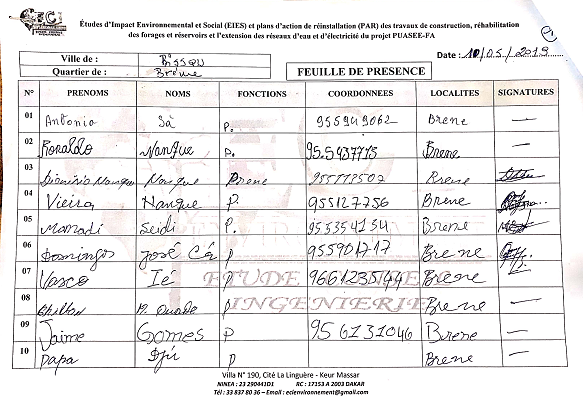 Études d'Impact Environnemental et Social (EIES) et plans d'action de réinstallation (PAR) des travaux de construction, réhabilitation
des forages et réservoirs et l'extension des réseaux d'eau et d'électricité du projet PUASEE-FA
Ville de : Bissau
Date : 10/05/2019
Quartier de : Brene
FEUILLE DE PRESENCE
N° PRENOMS NOMS FONCTIONS COORDONNEES LOCALITES SIGNATURES
01 Antonio Sà P. 955949062 Brene —
02 Ronaldo Nanque P. Brene —
03 Nanque
04 Vieira Nanque P 955127756 Brene
05 Mamadi Seidi P. 955354154 Brene
06 Domingos José Cá P 955901717 Brene
07 Vasco Ié P 966123544 Brene —
08 P Brene —
09 Jaime Gomes P 956131046 Brene —
10 Papa Djú P Brene —
ETUDE
INGENIERIE
Villa N° 190, Cité La Linguère - Keur Massar
NINEA : 23 2904401 RC : 17153 A 2003 DAKAR
Tél : 33 837 80 36 – Email : eclenvironnement@gmail.com